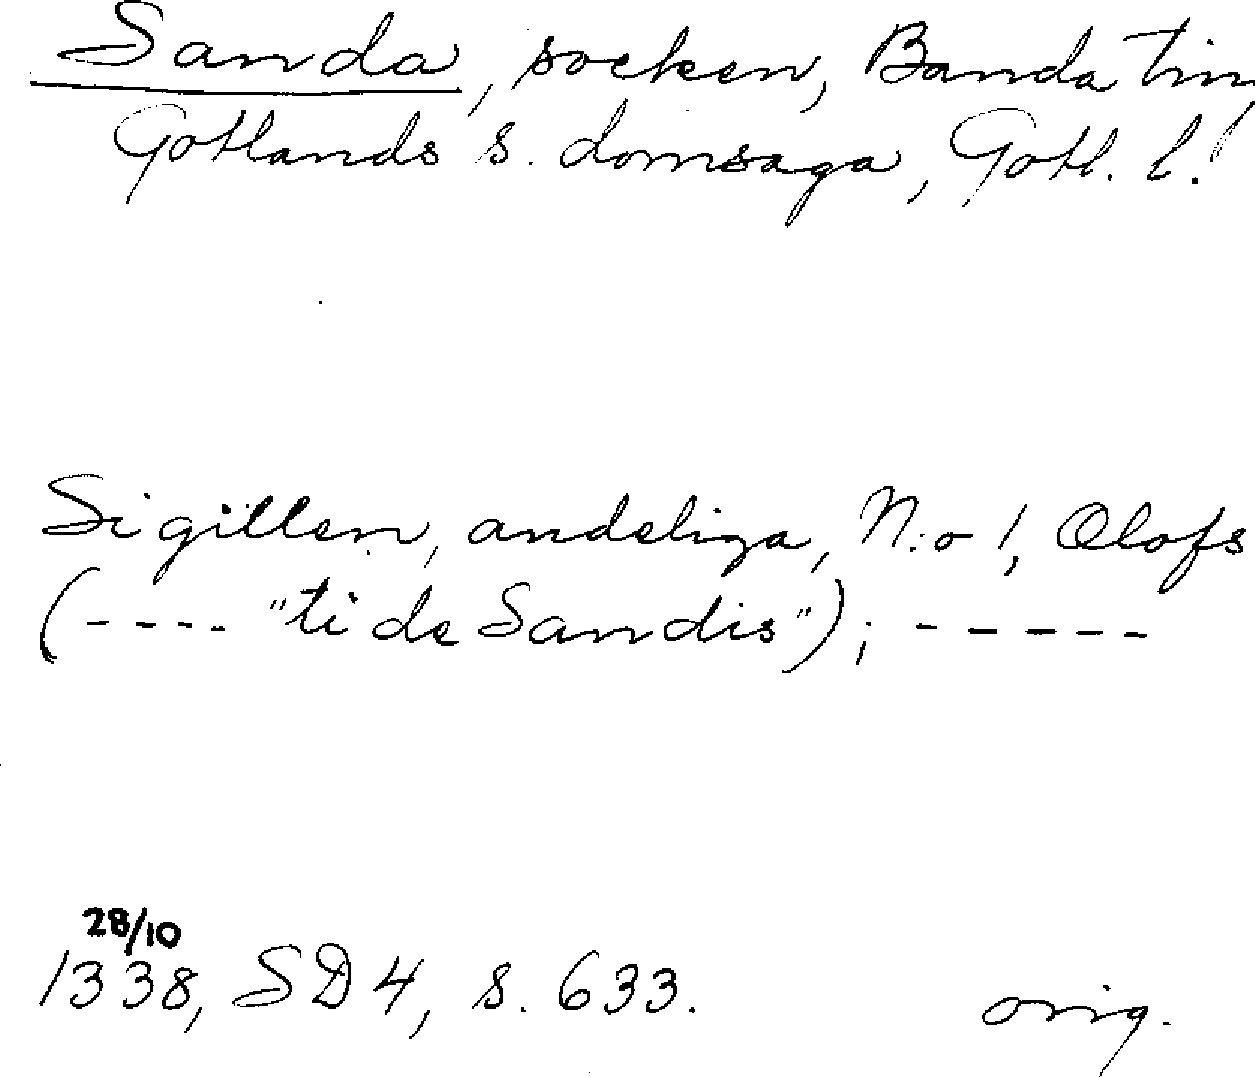 Sanda, socken, Banda ting,
Gotlands s. domsaga, Gotl. l.
Sigillen, andeliga, N:o 1, Olofs
(---- "ti de Sandis"); -----
28/10
1338, SD 4, s. 633. orig.